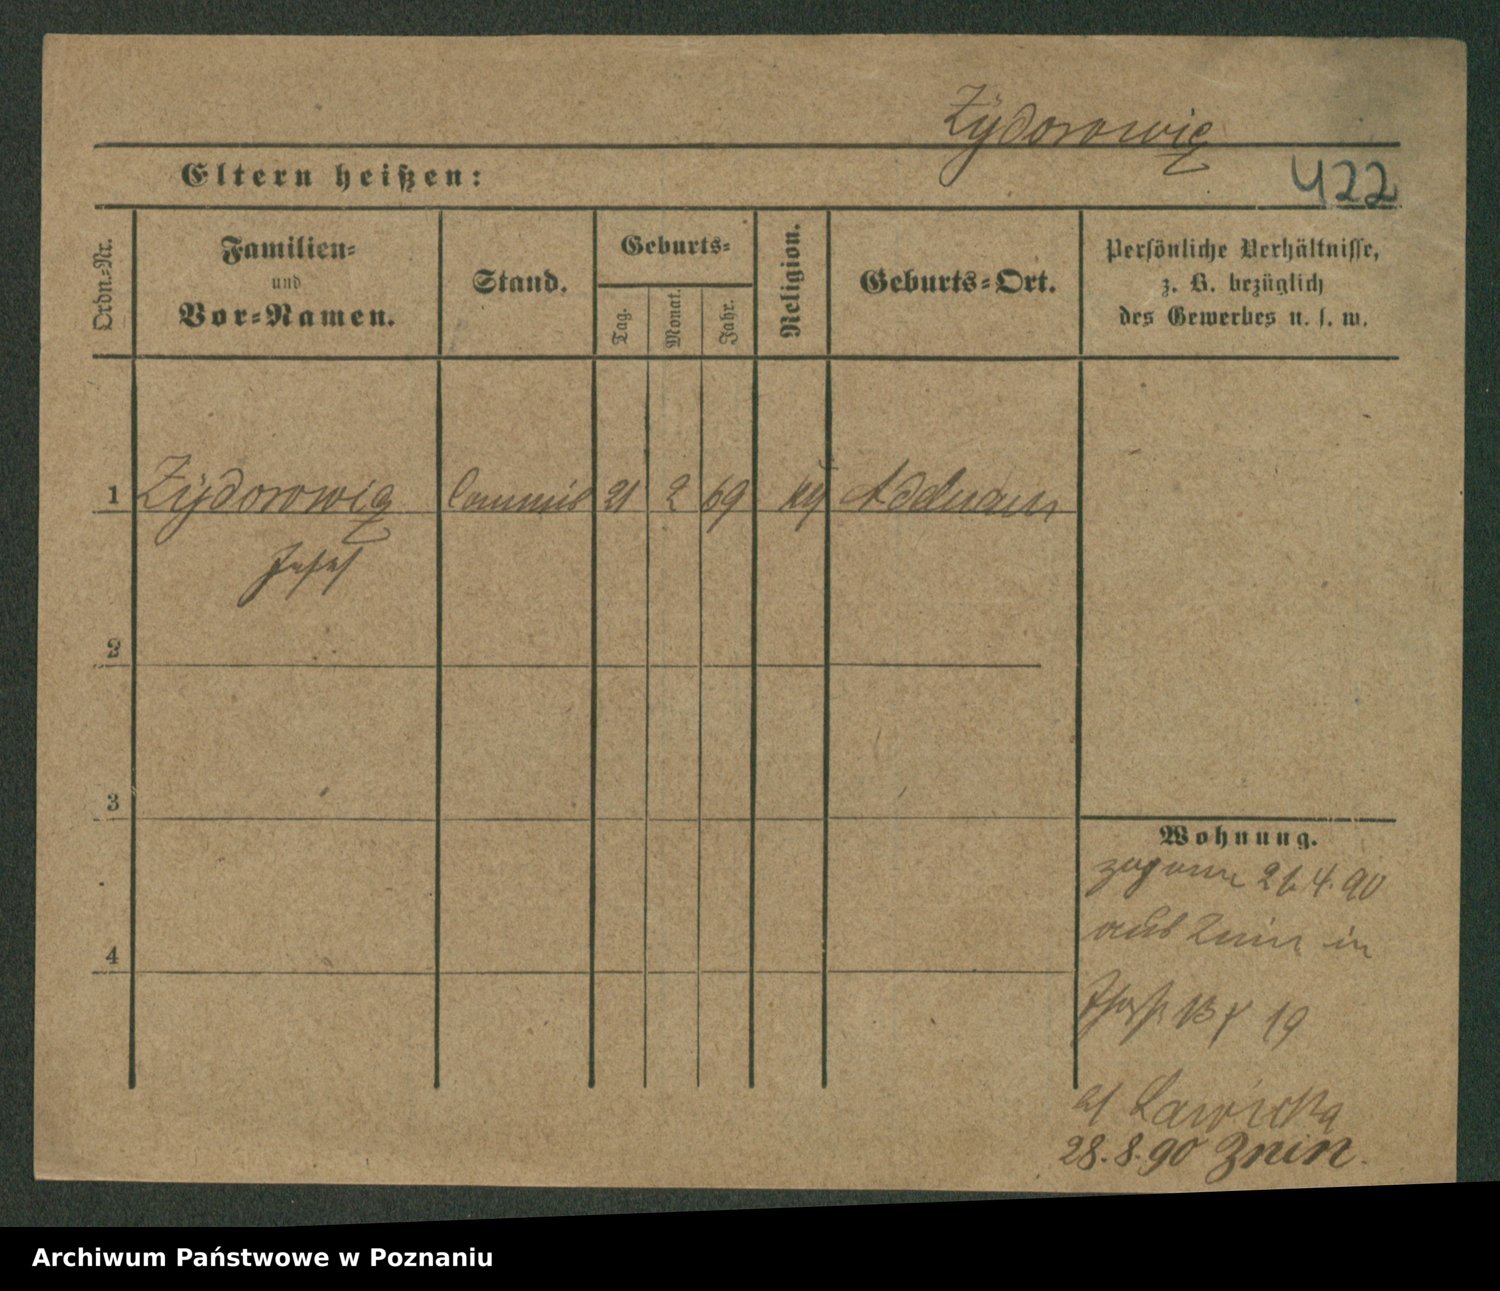 Zydorowicz
Eltern heißen:
422
Ordn.-Nr.
Familien-
und
Vor-Namen.
Stand.
Geburts-
Tag.
Monat.
Jahr.
Religion.
Geburts-Ort.
Persönliche Verhältnisse,
z. B. bezüglich
des Gewerbes u. s. w.
1 Zydorowicz Commis 21 2 69
Josef
2
3
4
Wohnung.
26 4. 90
aus Znin in
19
Lawicka
28. 8. 90 Znin.
Archiwum Państwowe w Poznaniu